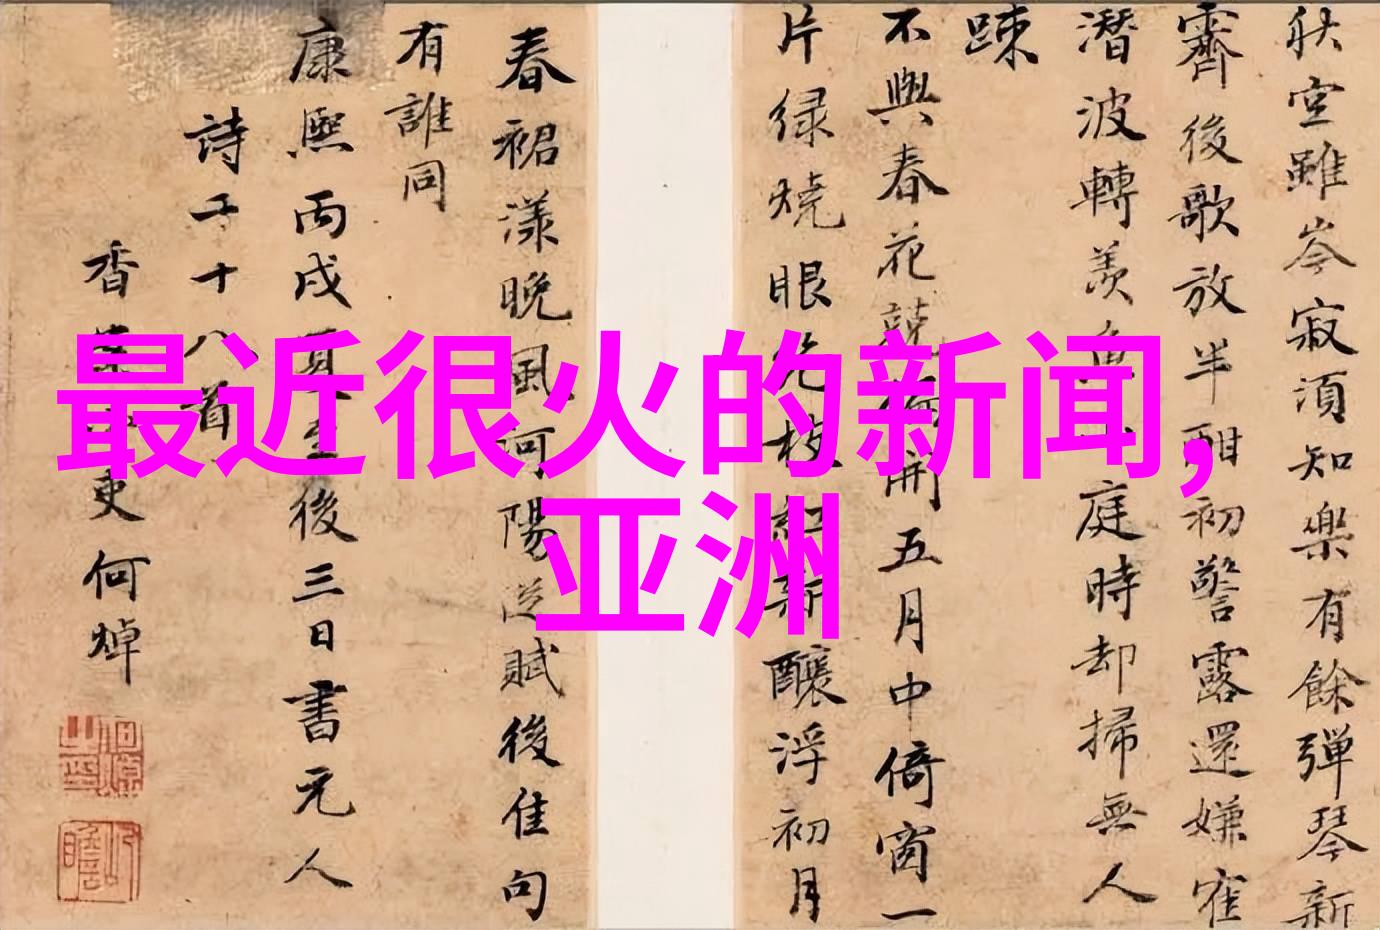 秋室雖岑寂須知樂有餘彈琴新
霽後歌放半酣初警露還嫌寉
潛波轉羨魚庭時却掃無人
踈
不與春花競開五月中倚窗一
片緑燒眼枝紅新釀浮初月
春裙漾晚風河陽從賦後隹句
有誰同
康熙丙戌夏至後三日書元人
詩二十八首
香吏何焯
最近很火的新闻,
亚洲